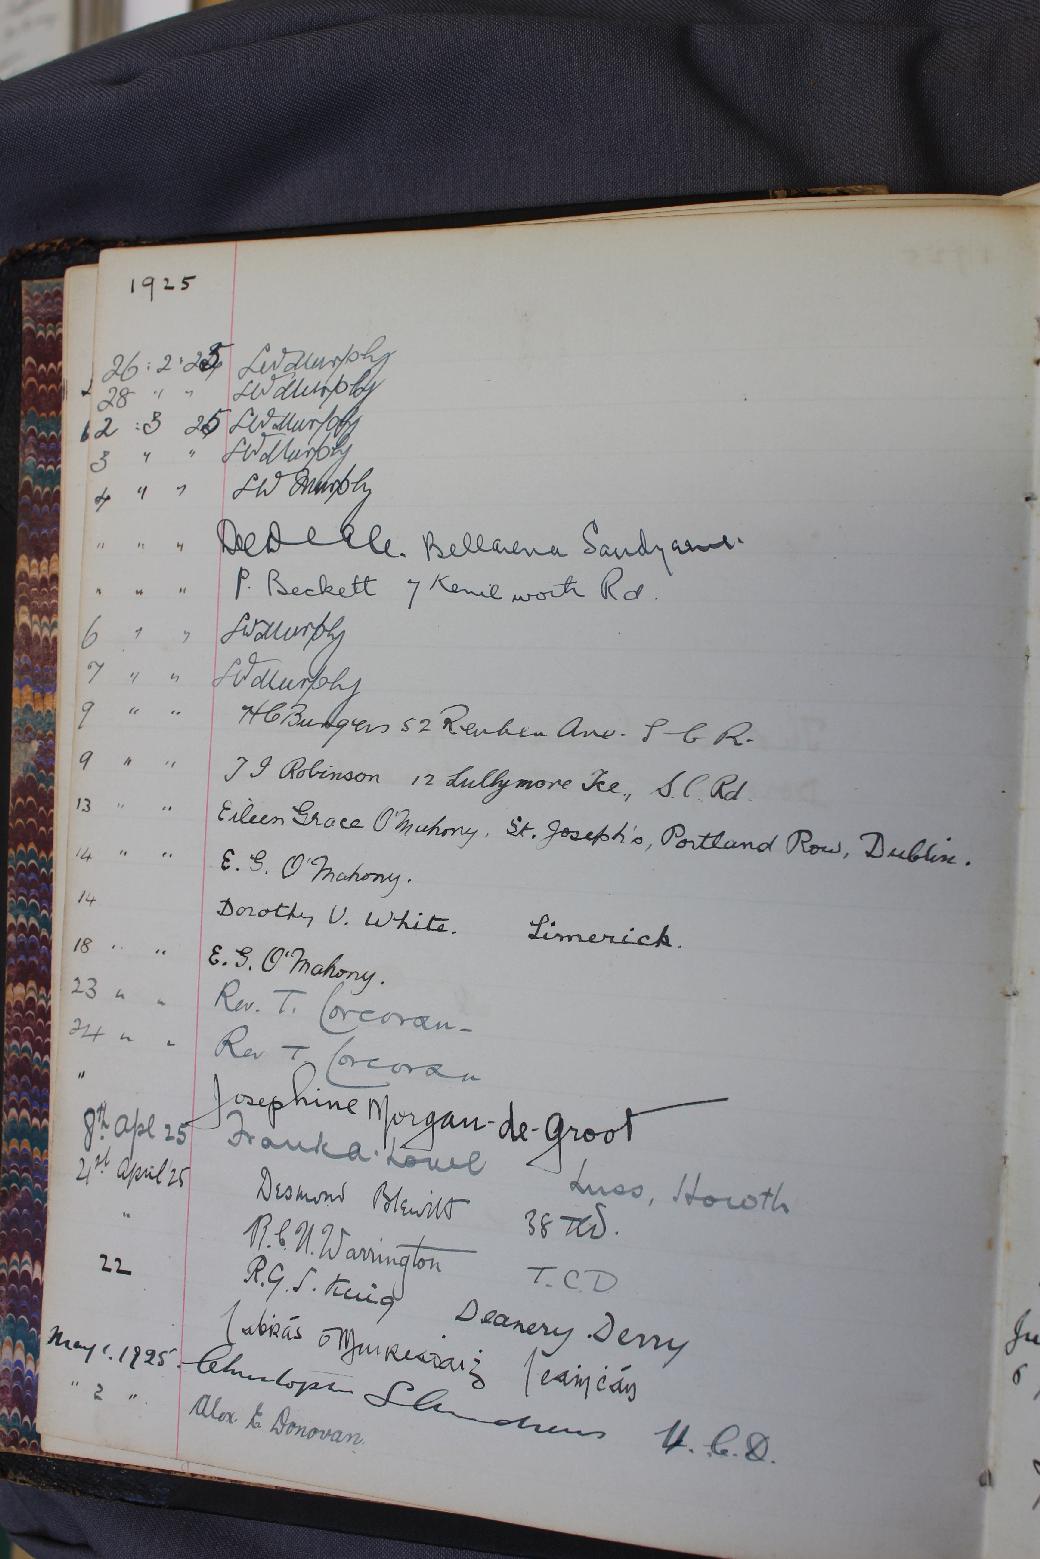 1925
26 : 2 : 25 LW Murphy
28 " " LW Murphy
2 : 3 25 LW Murphy
3 " " LW Murphy
4 " " LW Murphy
" " " Bellarena
" " " P. Beckett 7 Kenilworth Rd.
6 " " LW Murphy
7 " " LW Murphy
9 " " H C Burgers 52 Reuben Ave. S C R.
9 " " J J Robinson 12 Lullymore Tce., S.C. Rd.
13 " " Eileen Grace O'Mahony, St. Joseph's, Portland Row, Dublin.
14 " " E. G. O'Mahony.
14 Dorothy V. White. Limerick.
18 " " E. G. O'Mahony.
23 " " Rev. T. Corcoran
24 " " Rev T. Corcoran
" Josephine Morgan-de-Groot
8th Apl 25 Luss, Howth
21st April '25 Desmond Blewitt 38 TCD.
" R. C. N. Warrington T.C.D
22 R. G. S. King Deanery. Derry
May 1. 1925. Christopher U.C.D.
" 2 " Alex E Donovan.